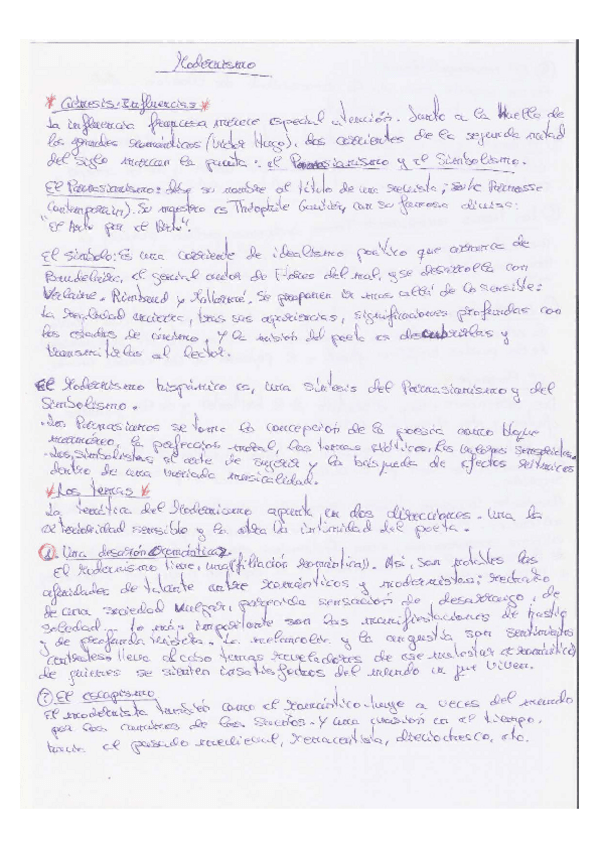 Modernismo
* Génesis: Influencias *
La influencia francesa merece especial atención. Junto a la Huella de
los grandes románticos (Victor Hugo), dos corrientes de la segunda mitad
del siglo marcan la pauta: el Parnasianismo y el Simbolismo.
El Parnasianismo: debe su nombre al título de una revista; Parnasse
Contemporain). Su maestro es Théophile Gautier, con su famosa divisa:
"El Arte por el Arte".
El Símbolo: Es una corriente de idealismo poético que arranca de
Baudelaire, el genial autor de Flores del mal, y se desarrolla con
Verlaine, Rimbaud y Mallarmé. Se proponen ir mas allá de lo sensible:
La realidad encierra, tras sus apariencias, significaciones profundas con
los estados de ánimo, y la misión del poeta es descubrirlas y
transmitirlas al lector.
El Modernismo hispánico es, una síntesis del Parnasianismo y del
Simbolismo.
· Los Parnasianos se toma la concepción de la poesía como bloque
marmóreo, la perfección, los temas exóticos, los valores sensoriales.
· Los Simbolistas el arte de sugerir y la búsqueda de efectos rítmicos
dentro de una variada musicalidad.
* Los temas *
La temática del Modernismo apunta en dos direcciones. Una la
exterioridad sensible y la otra la intimidad del poeta.
1. Una desazón (romántica).
El Modernismo tiene, una (filiación romántica). Así, son notables las
afinidades de talante entre románticos y modernistas; rechazo
de una sociedad vulgar, sensación de desarraigo, de
soledad... Lo más importante son las manifestaciones de hastío
y de profunda tristeza. La melancolía y la angustia son sentimientos
temas reveladores de ese malestar (romántico)
de quienes se sienten insatisfechos del mundo en que viven.
2. El escapismo
El modernista también como el romántico huye a veces del mundo
por los caminos de los Sueños. Y una evasión en el tiempo,
hacia el pasado medieval, renacentista, dieciochesco, etc.